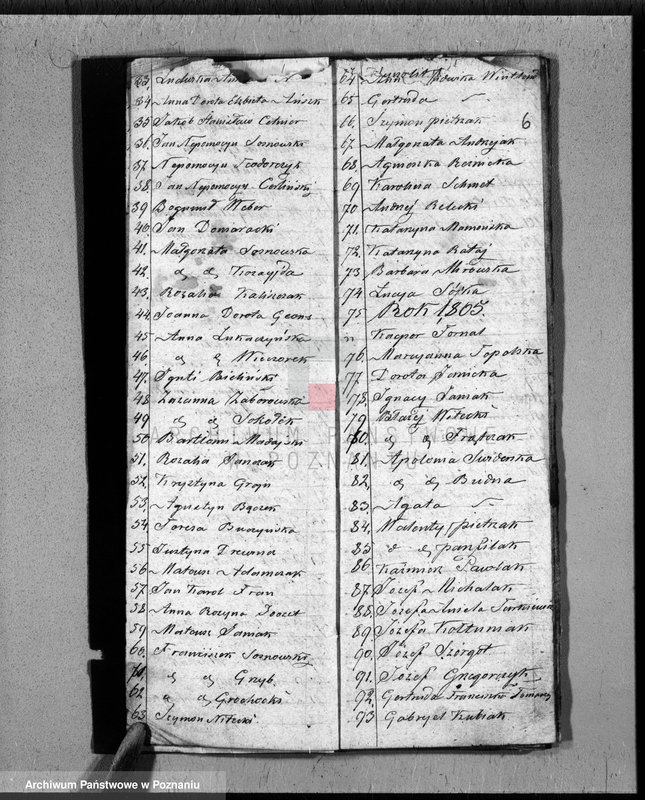 33. Ludwika
34 Anna Dorota Elzbieta
35 Jakób Stanisław Celner
36. Jan Nepomocyn Sosnowski
37. Nepomocyn Teodorczyk
38. Jan Nepomocyn Cerliński
39 Bogumił Weber
40. Jan Domaracki
41. Małgorzata Sosnowska
42 & & Kozayda
43. Rozalia Kaźiczak
44. Joanna Dorota
45 Anna Łukaszyńska
46 & & Wieczorek
47. Jgnti Bieliński
48 Zuzanna Zaborowska
49 & & Sokołek
50 Bartłomi
51. Rozalia Janczak
52. Krysztyna
53. Agnetyn Bączek
54. Teresa Buczyńska
55 Justyna
56 Mateusz Adamczak
57. Jan Karol
58 Anna Rozyna
59 Mateusz Jamak
60. Franciszek Sosnowski
61 & & Grzyb
62 & & Grochocki
63 Szymon Nitecki
64
65 Gertruda
66. Szymon Pietrzak
6
67. Małgorzata Andrzyak
68. Agnieszka Roznicka
69 Karolina Schmet
70 Andrzej Relecki
71. Katarzyna Mamonska
72. Katarzyna Rataj
73 Barbara Mrowska
74 Łucyja Sówka
75. Rok 1805.
" Kacper Fornal
76. Maryanna Topolska
77 Dorota Janicka
78. Jgnacy Jamak
79 Błażej Witecki
80 & & Frątczak
81. Apolonia Swiderska
82. & & Budna
83. Agata
84. Walenty Pietrzak
85 & & Panfilak
86 Kaźmierz Pawlak
87. Jozef Michalak
88 Jozefa Aniela
89 Józefa Kołtuniak
90. Józef Szorgot
91. Józef Grzegorczyk
92. Gertruda Franciszka
93 Gabryel Kubiak
ARCHIWUM PAŃSTWOWE
W POZNANIU
Archiwum Państwowe w Poznaniu